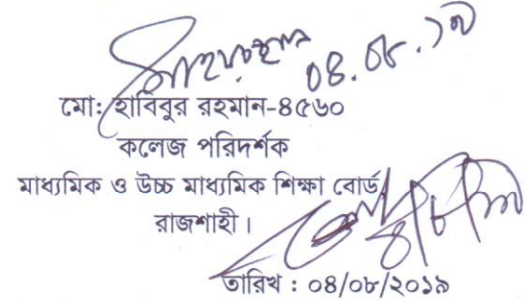 ০৪.০৮.১৯
মো: হাবিবুর রহমান-৪৫৬০
কলেজ পরিদর্শক
মাধ্যমিক ও উচ্চ মাধ্যমিক শিক্ষা বোর্ড
রাজশাহী।
তারিখ : ০৪/০৮/২০১৯